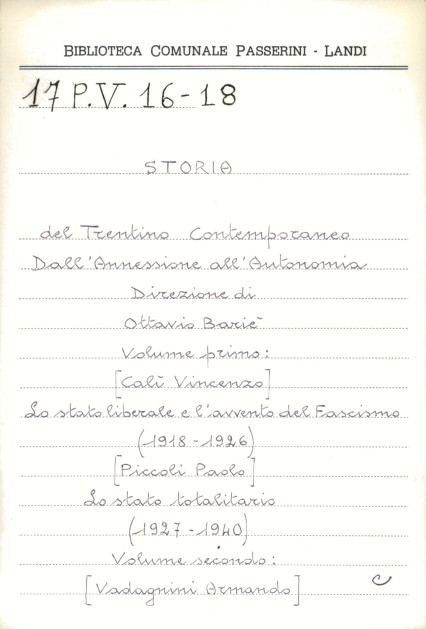 BIBLIOTECA COMUNALE PASSERINI - LANDI
17 P.V. 16-18
STORIA
del Trentino Contemporaneo
Dall'Annessione all'Autonomia
Direzione di
Ottavio Bariè
Volume primo:
[Calì Vincenzo]
Lo stato liberale e l'avvento del Fascismo
(1918-1926)
[Piccoli Paolo]
Lo stato totalitario
(1927-1940)
Volume secondo:
[Vadagnini Armando]